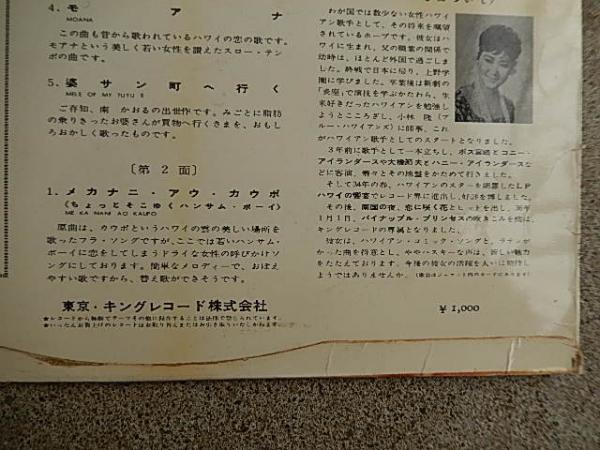 4. モアナ
MOANA
この曲も昔から歌われているハワイの恋の歌です。
モアナという美しく若い女性を讃えたスロー・テン
ポの曲です。
5. 婆サン町へ行く
MELE OF MY TUTU E
ご存知、南 かおるの出世作です。みごとに脂肪
の乗りきったお婆さんが買物へ行くさまを、おもし
ろおかしく歌ったものです。
〔第2面〕
1. メカナニ・アウ・カウポ
(ちょっとそこゆくハンサム・ボーイ)
ME KA NANI AO KAUPO
原曲は、カウポというハワイの雲の美しい場所を
歌ったフラ・ソングですが、ここでは若いハンサム・
ボーイに恋をしてしまうドライな女性の呼びかけソ
ングにしております。簡単なメロディーで、おぼえ
やすい歌ですから、替え歌ができそうです。
東京・キングレコード株式会社
★レコードから無断でテープその他に録音することは法律で禁じられています。
★いったんお買上げのレコードはお取り替えまたはお引き取りいたしかねます。
わが国では数少ない女性ハワイ
アン歌手として、その将来を嘱望
されているホープです。彼女はハ
ワイに生まれ、父の職業の関係で
幼時は、ほとんど外国で過ごしま
した。終戦で日本に帰り、上野学
園に学びました。卒業後は新劇の
「炎座」で演技を学ぶかたわら、生
来好きだったハワイアンを勉強し
ようとこころざし、小林 隆(ブ
ルー・ハワイアンズ)に師事、これ
がハワイアン歌手としてのスタートとなりました。
3年前に歌手として一本立ちし、ポス宮崎とコニー・
アイランダースや大橋節夫とハニー・アイランダースな
どに客演、着々とその地盤をかためて行きました。
そして34年の春、ハワイアンのスターを網羅したLP
ハワイの饗宴でレコード界に進出し、好評を博しました。
その後、南国の夜、恋に咲く花とヒットを出し、36年
1月1日、パイナップル・プリンセスの吹きこみを機に
キングレコードの専属となりました。
彼女は、ハワイアン・コミック・ソングと、ラテンが
かった曲を得意とし、ややハスキーな声は、新しい魅力
をたたえております。今後の彼女の活躍を大いに期待し
ようではありませんか。
¥1,000